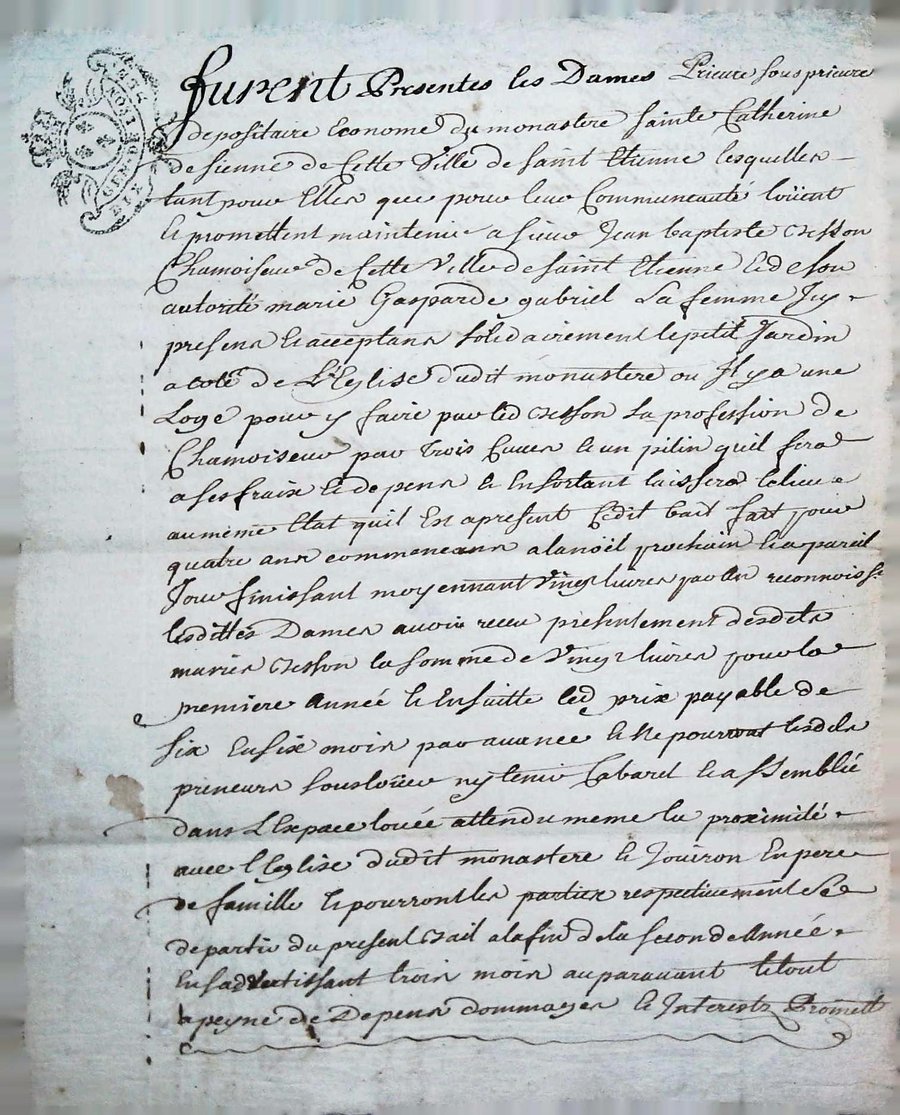 GEN. DE LION
furent Presentes les Dames Prieure sousprieure
depositaire Econome du monastere Sainte Catherine
de sienne de Cette Ville de Saint Etienne lesquelles
tant pour Elles que pour leur Communeauté loüent
et promettent maintenir a sieur Jean baptiste
Chamoiseur de Cette Ville de Saint Etienne et de son
autorité marie Gasparde gabriel sa femme Icy
presens et acceptans solidairement le petit Jardin
a coté de L'Eglise dudit monastere ou Il y a une
Loge pour y faire par led sa profession de
Chamoiseur par trois Cuves et un pilin quil fera
a ses fraix et depens et En sortant laissera le lieu
au meme Etat quil Est apresent Cedit bail fait pour
quatre ans commencans a la noël prochain et a pareil
Jour finissant moyennant Vingt livres par An reconnoiss.t
lesdittes Dames avoir receu presentement desdits
mariés la somme de Vingt livres pour la
premiere Année et Ensuitte led prix payable de
six En six mois par avance et Ne pourront lesdits
preneurs sousloüer ny tenir Cabaret et assemblée
dans L'Espace louée attendu meme la proximité
avec l'Eglise dudit monastere et Jouiront En pere
de famille et pourront les parties respectivement se
departir du present bail a la fin de la seconde Année
En sadvertissant trois mois auparavant le tout
a peyne de Depens dommages et Interests Promett